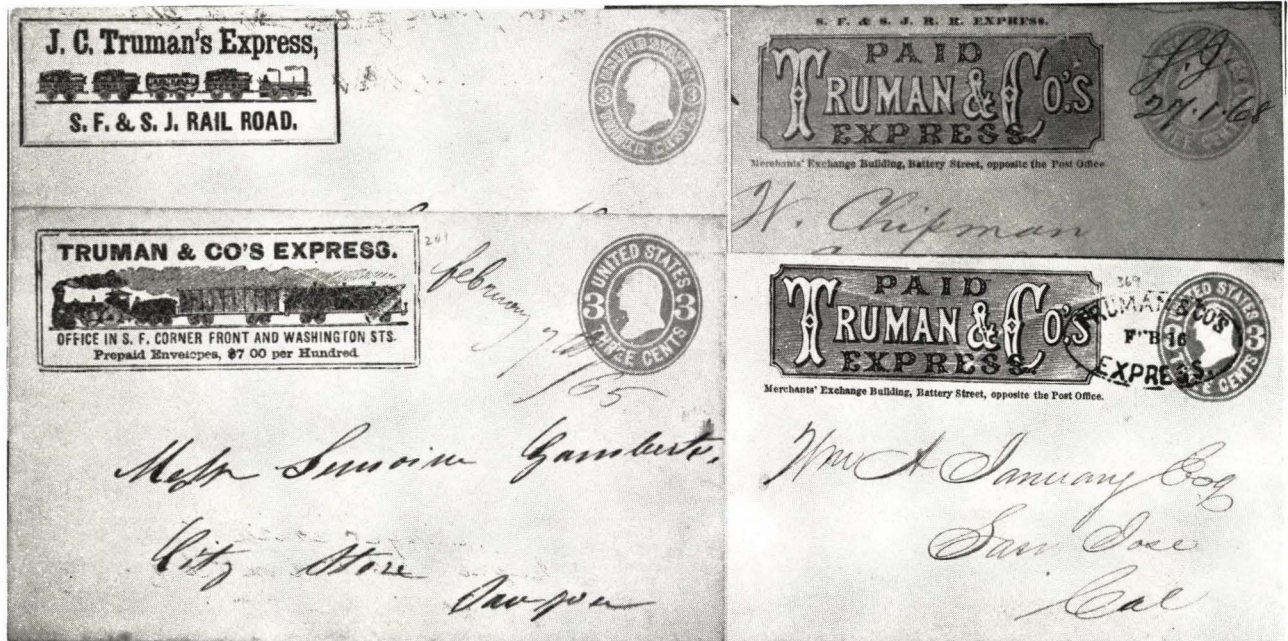 J. C. Truman's Express,
S. F. & S. J. RAIL ROAD.
UNITED STATES
3 3
THREE CENTS
S. F. & S. J. R. R. EXPRESS.
PAID
TRUMAN & CO.'S
EXPRESS
Merchants' Exchange Building, Battery Street, opposite the Post Office
S. J.
27.1.68
W. Chipman
TRUMAN & CO'S EXPRESS.
OFFICE IN S. F. CORNER FRONT AND WASHINGTON STS.
Prepaid Envelopes, $7 00 per Hundred
261
february
/65
UNITED STATES
3 3
THREE CENTS
Messr Lemoine Gambert
City Store
San jose
PAID
TRUMAN & CO.'S
EXPRESS
Merchants' Exchange Building, Battery Street, opposite the Post Office.
369
TRUMAN & CO'S
F B 16
EXPRESS.
UNITED STATES
3
CENTS
Wm A January Esq
San Jose
Cal